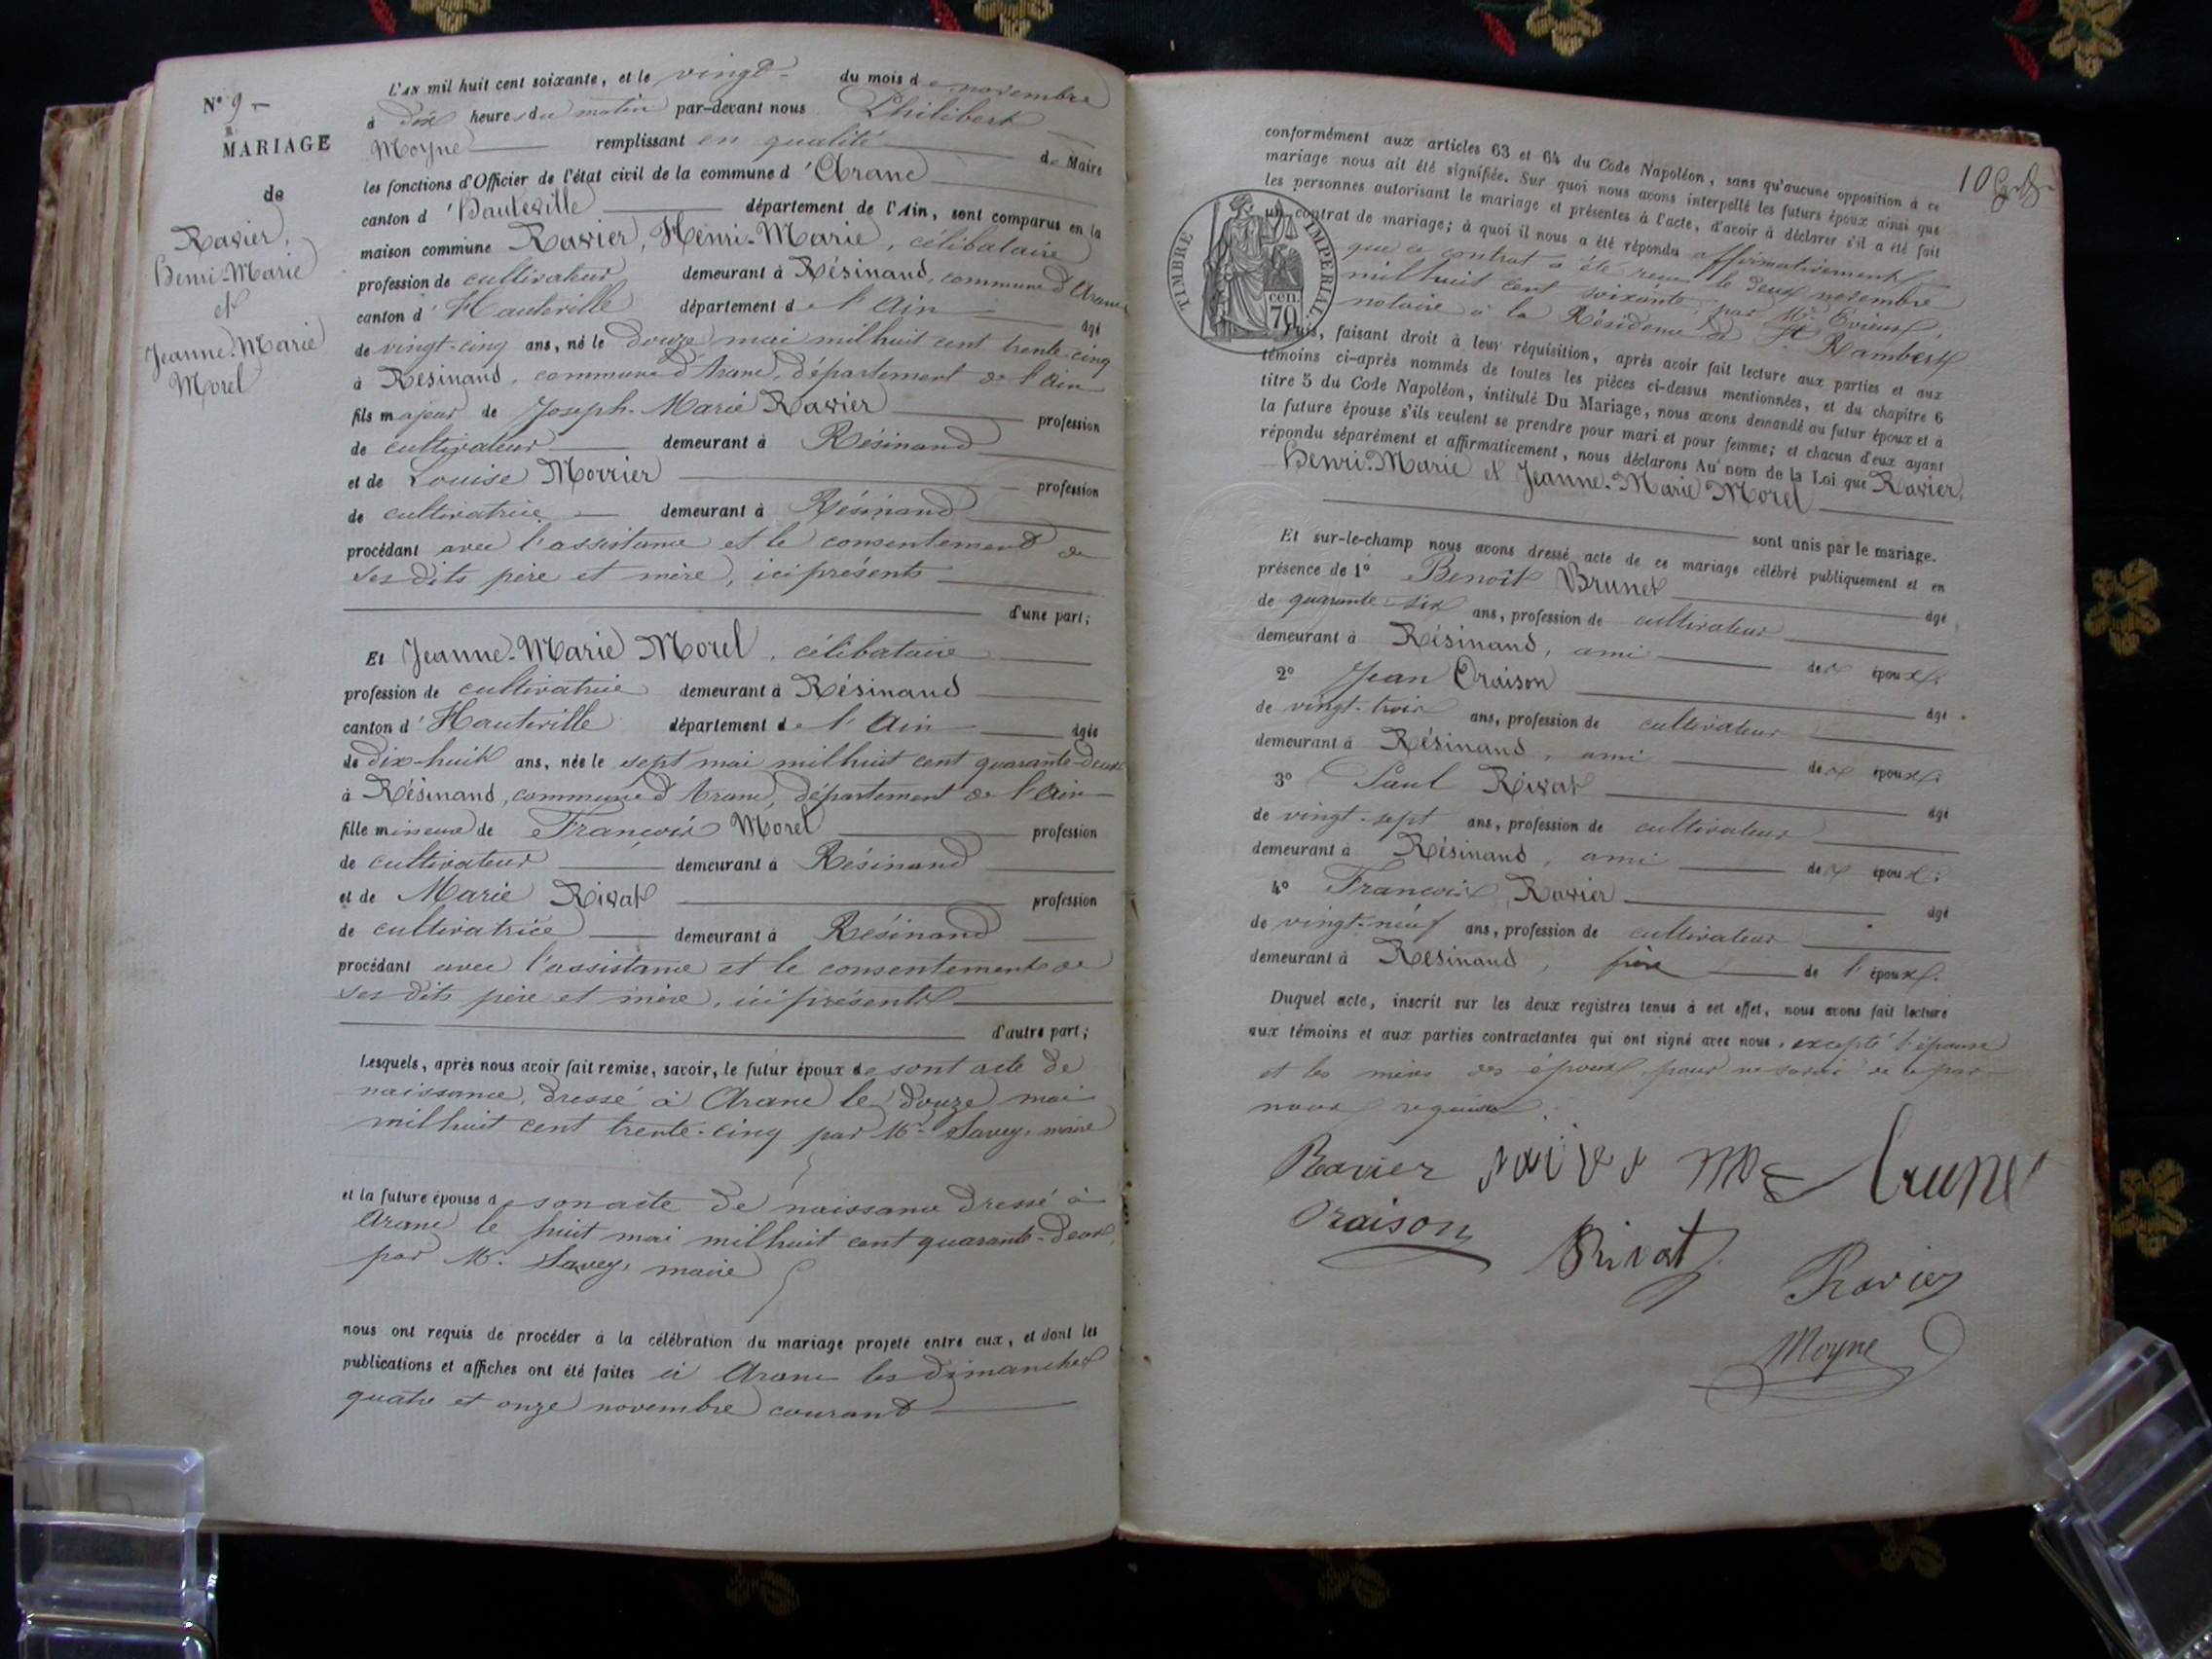 N° 9
MARIAGE
de
Ravier,
Henri-Marie
et
Jeanne-Marie
Morel
L'AN mil huit cent soixante, et le vingt du mois de novembre
à dix heures du matin par-devant nous Philibert
Moyne remplissant en qualité de Maire
les fonctions d'Officier de l'état civil de la commune d'Aranc
canton d'Hauteville département de l'Ain, sont comparus en la
maison commune Ravier, Henri-Marie, célibataire
profession de cultivateur demeurant à Résinand, commune d'Aranc
canton d'Hauteville département de l'Ain âgé
de vingt-cinq ans, né le douze mai mil huit cent trente-cinq
à Résinand, commune d'Aranc, département de l'Ain
fils majeur de Joseph-Marie Ravier profession
de cultivateur demeurant à Résinand
et de Louise Morrier profession
de cultivatrice demeurant à Résinand
procédant avec l'assistance et le consentement de
ses dits père et mère, ici présents
d'une part;
Et Jeanne-Marie Morel, célibataire
profession de cultivatrice demeurant à Résinand
canton d'Hauteville département de l'Ain âgée
de dix-huit ans, née le sept mai mil huit cent quarante-deux
à Résinand, commune d'Aranc, département de l'Ain
fille mineure de François Morel profession
de cultivateur demeurant à Résinand
et de Marie Rivat profession
de cultivatrice demeurant à Résinand
procédant avec l'assistance et le consentement de
ses dits père et mère, ici présents
d'autre part;
Lesquels, après nous avoir fait remise, savoir, le futur époux de sont acte de
naissance, dressé à Aranc le douze mai
mil huit cent trente-cinq par Mr. Savey, maire
et la future épouse de son acte de naissance dressé à
Aranc le huit mai mil huit cent quarante-deux,
par Mr. Savey, maire
nous ont requis de procéder à la célébration du mariage projeté entre eux, et dont les
publications et affiches ont été faites à Aranc les dimanches
quatre et onze novembre courant
10
conformément aux articles 63 et 64 du Code Napoléon, sans qu'aucune opposition à ce
mariage nous ait été signifiée. Sur quoi nous avons interpellé les futurs époux ainsi que
les personnes autorisant le mariage et présentes à l'acte, d'avoir à déclarer s'il a été fait
un contrat de mariage; à quoi il nous a été répondu affirmativement
que ce contrat a été reçu le deux novembre
mil huit cent soixante, par Mr. Evieux,
notaire à la Résidence de St Rambert
TIMBRE IMPERIAL
70 cen.
Puis, faisant droit à leur réquisition, après avoir fait lecture aux parties et aux
témoins ci-après nommés de toutes les pièces ci-dessus mentionnées, et du chapitre 6
titre 5 du Code Napoléon, intitulé Du Mariage, nous avons demandé au futur époux et à
la future épouse s'ils veulent se prendre pour mari et pour femme; et chacun d'eux ayant
répondu séparément et affirmativement, nous déclarons Au nom de la Loi que Ravier,
Henri-Marie et Jeanne-Marie Morel
sont unis par le mariage.
Et sur-le-champ nous avons dressé acte de ce mariage célébré publiquement et en
présence de 1° Benoit Brunet âgé
de quarante-six ans, profession de cultivateur
demeurant à Résinand, ami des époux.
2° Jean Oraison âgé
de vingt-trois ans, profession de cultivateur
demeurant à Résinand, ami des époux.
3° Paul Rivat âgé
de vingt-sept ans, profession de cultivateur
demeurant à Résinand, ami des époux.
4° François Ravier âgé
de vingt-neuf ans, profession de cultivateur
demeurant à Résinand, frère de l'époux.
Duquel acte, inscrit sur les deux registres tenus à cet effet, nous avons fait lecture
aux témoins et aux parties contractantes qui ont signé avec nous, excepté l'épouse
et les mères des époux, pour ne savoir de ce par
nous requises.
Ravier
Oraison Rivat
Ravier
Moyne